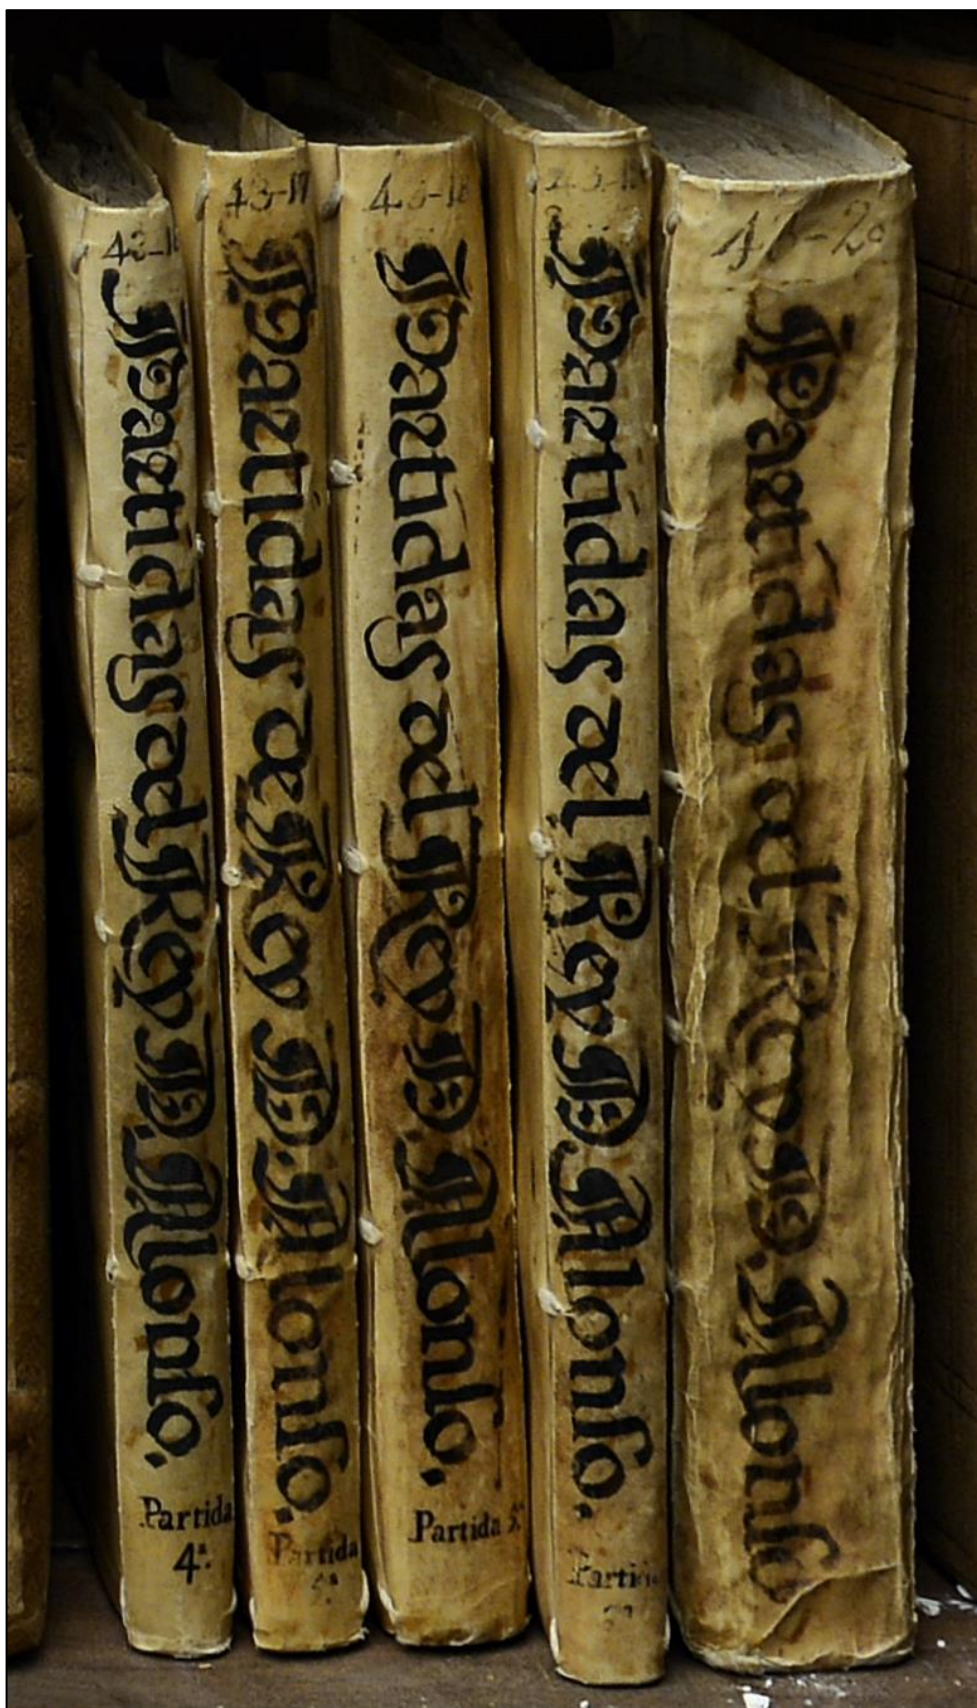 43-16
Partidas del Rey D. Alonso.
Partida
4ª.
43-17
Partidas de Rey D. Alonso.
Partida
43-18
Partidas del Rey D. Alonso.
Partida
Partidas del Rey D. Alonso.
Partida
43-20
Partidas del Rey D. Alonso